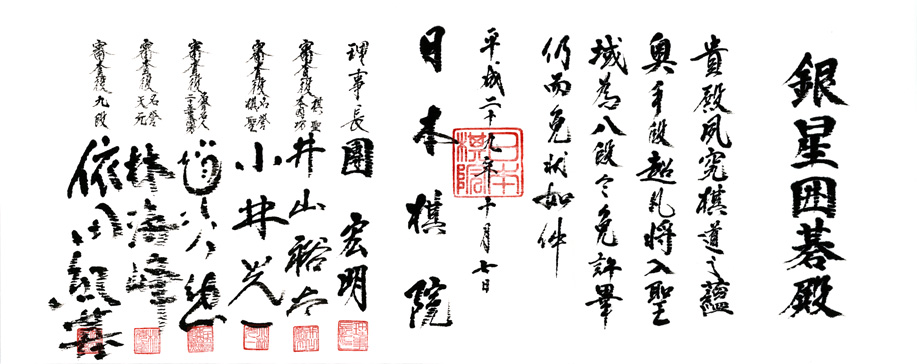 銀星囲碁殿
貴殿夙究棋道之蘊
奥手段超凡将入聖
域為八段令免許畢
仍而免状如件
平成二十九年十月七日
日本棋院
日本棋院
理事長 團 宏明
審査役 棋聖 本因坊 井山裕太
審査役 名誉棋聖 小林光一
審査役 二十五世本因坊 治勲
審査役 名誉天元 林海峰
審査役 九段 依田紀基